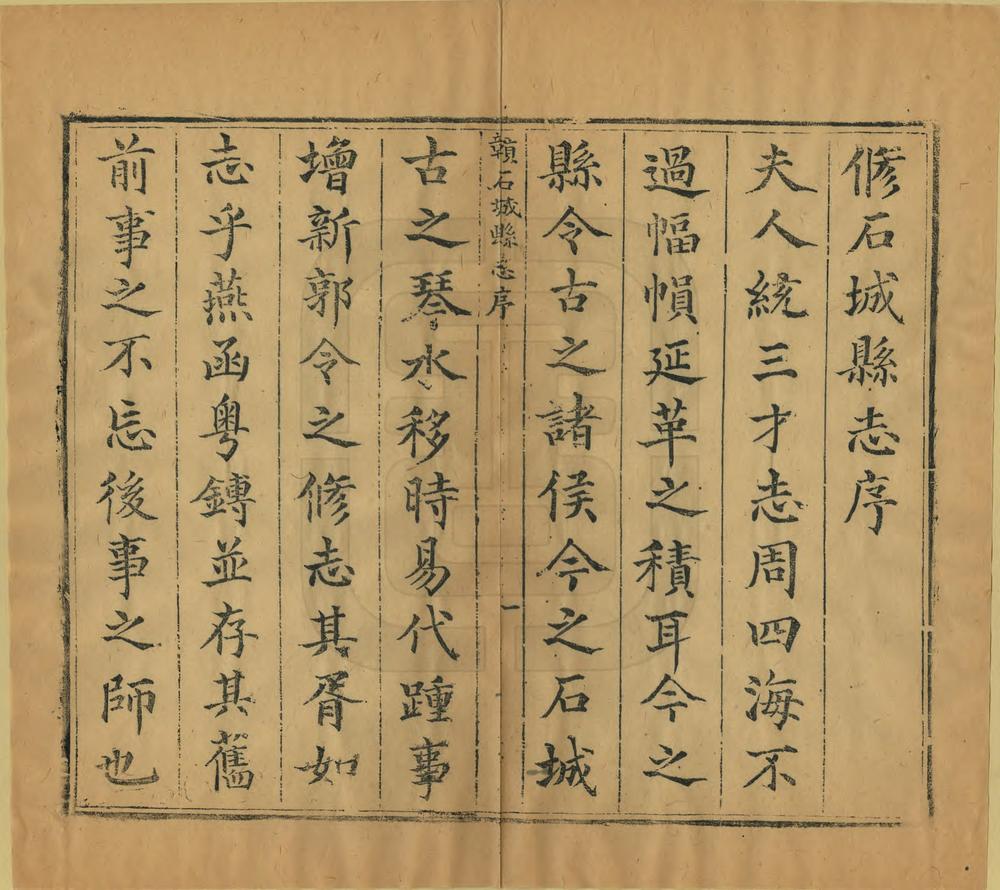 修石城縣志序
夫人統三才志周四海不
過幅幀延革之積耳今之
縣令古之諸侯今之石城
贛石城縣志序
一
古之琴水移時易代踵事
增新郭令之修志其胥如
志乎燕函粵鏄並存其舊
前事之不忘後事之師也